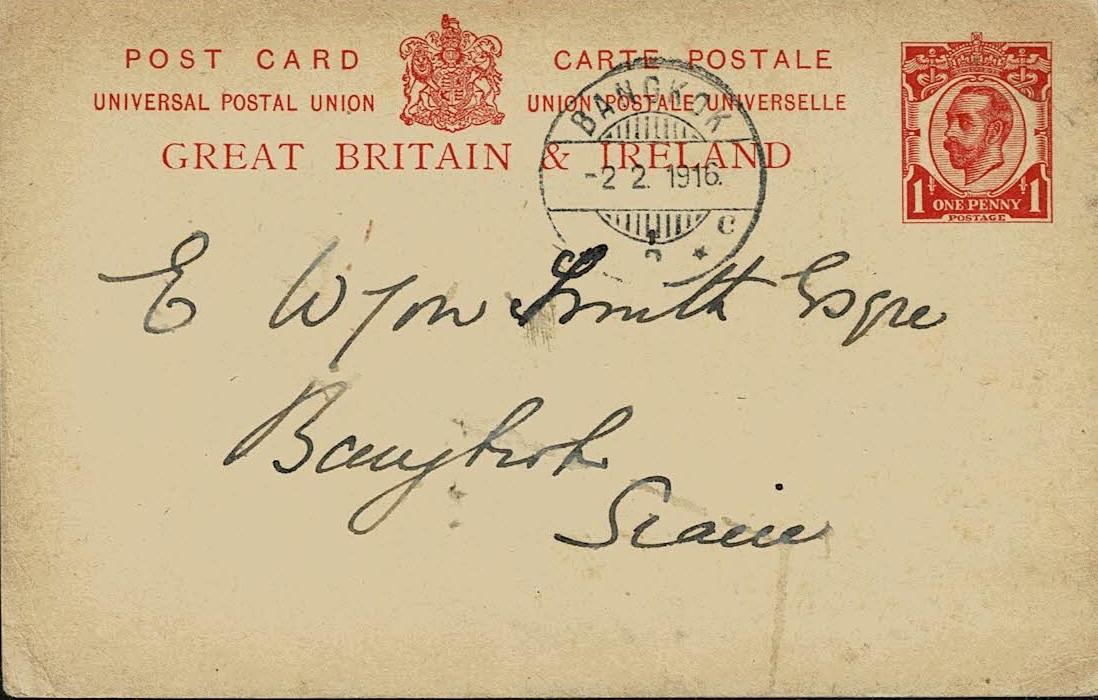 POST CARD CARTE POSTALE
UNIVERSAL POSTAL UNION UNION POSTALE UNIVERSELLE
GREAT BRITAIN & IRELAND
1 ONE PENNY 1
POSTAGE
BANGKOK
-2 2. 1916.
C
E Wyon Smith Esqre
Bangkok
Siam